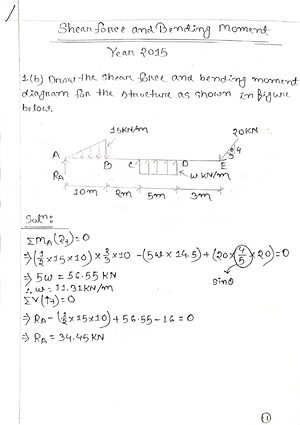 Shear force and Bending Moment
Year 2015
1.(b) Draw the shear force and bending moment
diagram for the structure as shown in figure
below.
15KN/m
20KN
A
B
C
D
E
3
4
RA
w KN/m
10m
2m
5m
3m
Soln:
ΣMA(↻+)=0
⇒(1/2×15×10)×2/3×10 −(5w×14.5)+(20×4/5×20)=0
⇒ 5w = 56.55 KN
sinθ
∴ w = 11.31KN/m
ΣV(↑+)=0
⇒ RA−(1/2×15×10)+56.55−16=0
⇒ RA = 34.45KN
1